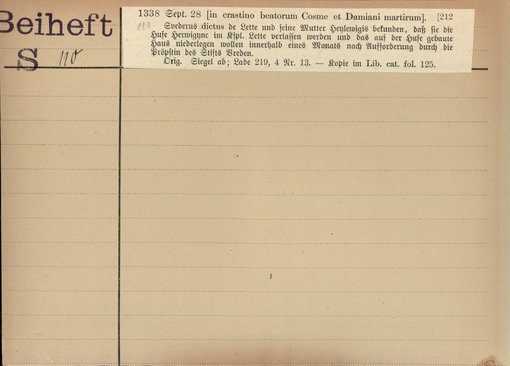 Beiheft
S 110
1338 Sept. 28 [in crastino beatorum Cosme et Damiani martirum]. [212
Svederus dictus de Lette und seine Mutter Heylewigis bekunden, daß sie die
Hufe Herwigync im Kspl. Lette verlassen werden und das auf der Hufe gebaute
Haus niederlegen wollen innerhalb eines Monats nach Aufforderung durch die
Pröpstin des Stifts Vreden.
Orig. Siegel ab; Lade 219, 4 Nr. 13. — Kopie im Lib. cat. fol. 125.